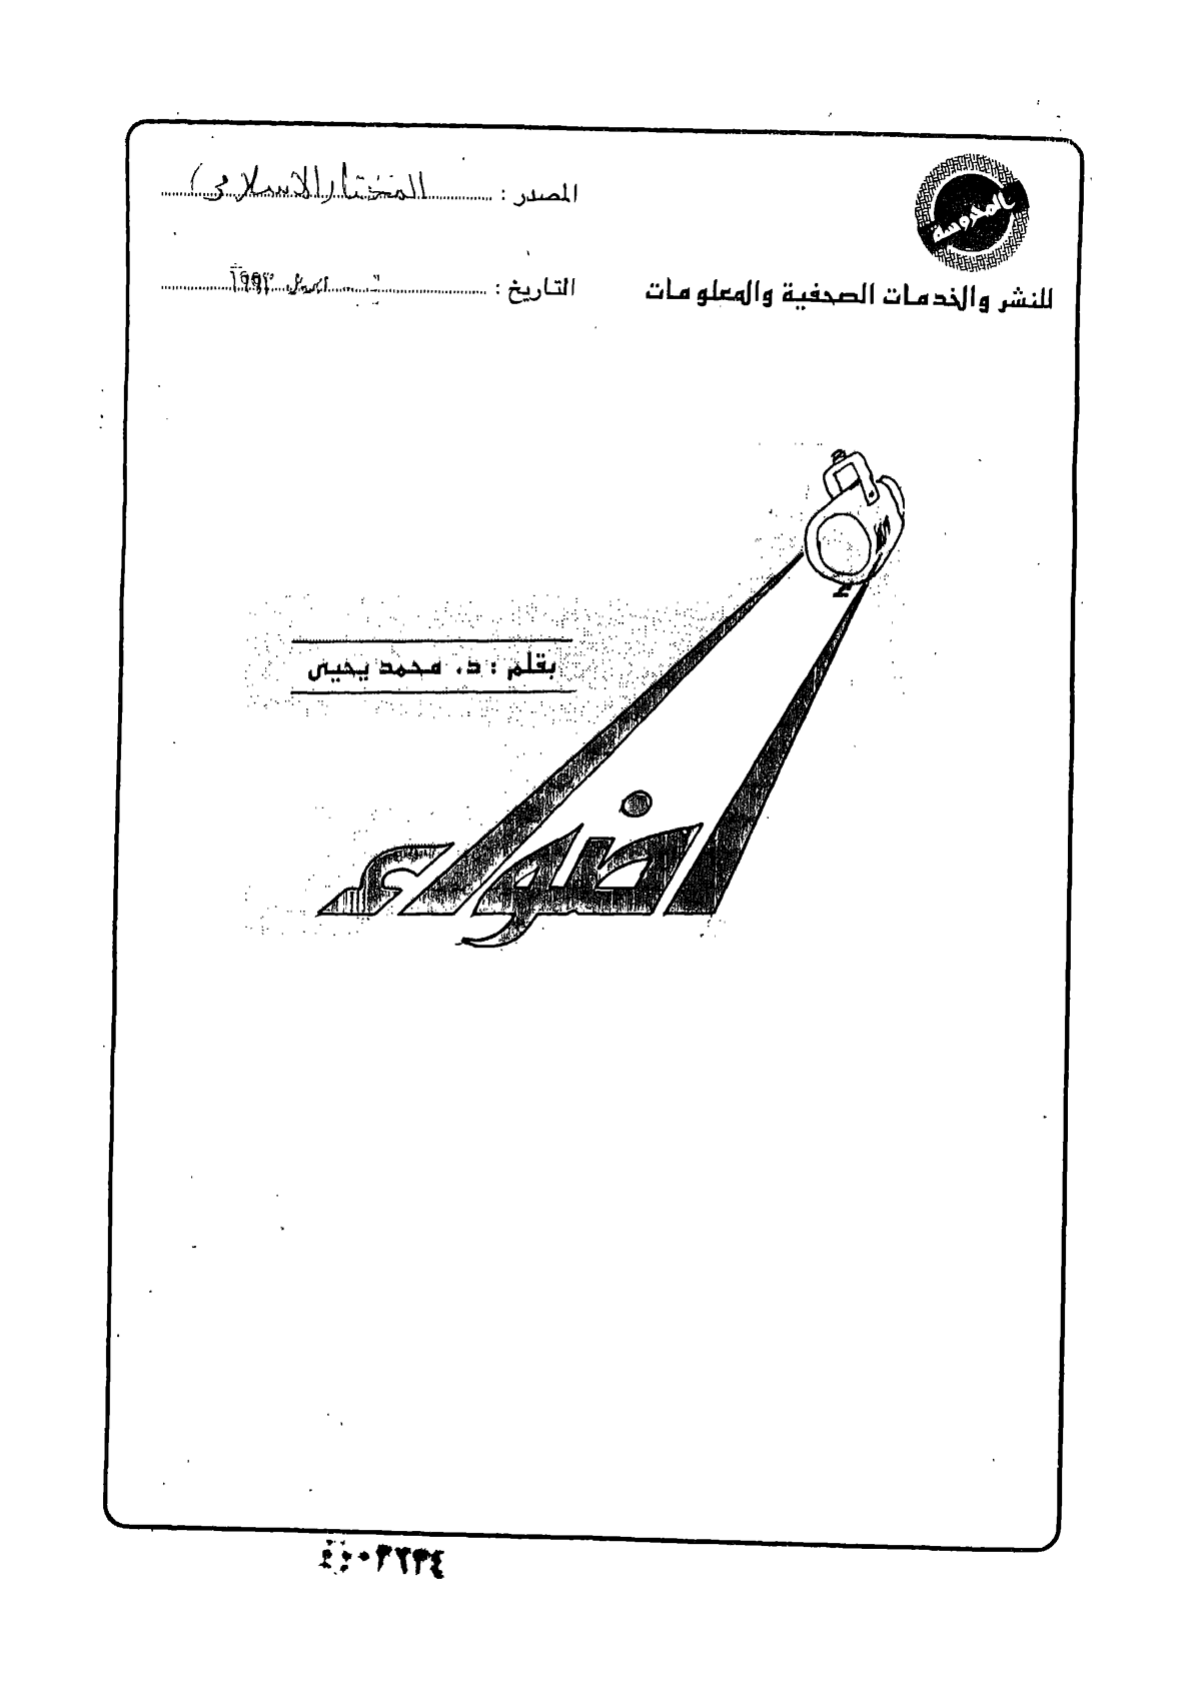 المحروسة
للنشر والخدمات الصحفية والمعلومات
المصدر : المختار الاسلامى
التاريخ : ابريل ١٩٩٣
بقلم : د. محمد يحيى
اضواء
٠٣٢٣٤